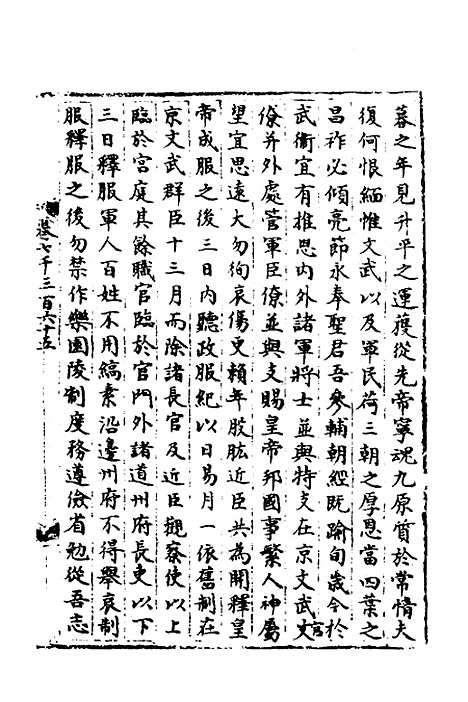 暮之年見升平之運獲從先帝寧魂九原質於常情夫
復何恨緬惟文武以及軍民荷三朝之厚恩當四葉之
昌祚必傾亮節永奉聖君吾參輔朝經既踰旬歲今於
武衛宜有推恩内外諸軍將士並與特支在京文武官
僚并外處管軍臣僚並與支賜皇帝邦國事繁人神屬
望宜思遠大勿徇哀傷更賴年股肱近臣共為開釋皇
帝成服之後三日内聽政服紀以日易月一依舊制在
京文武群臣十三月而除諸長官及近臣觀察使以上
臨於宮庭其餘職官臨於宮門外諸道州府長吏以下
三日釋服軍人百姓不用縞素沿邊州府不得舉哀制
服釋服之後勿禁作樂園陵制度務遵儉省勉從吾志
卷七千三百六十五